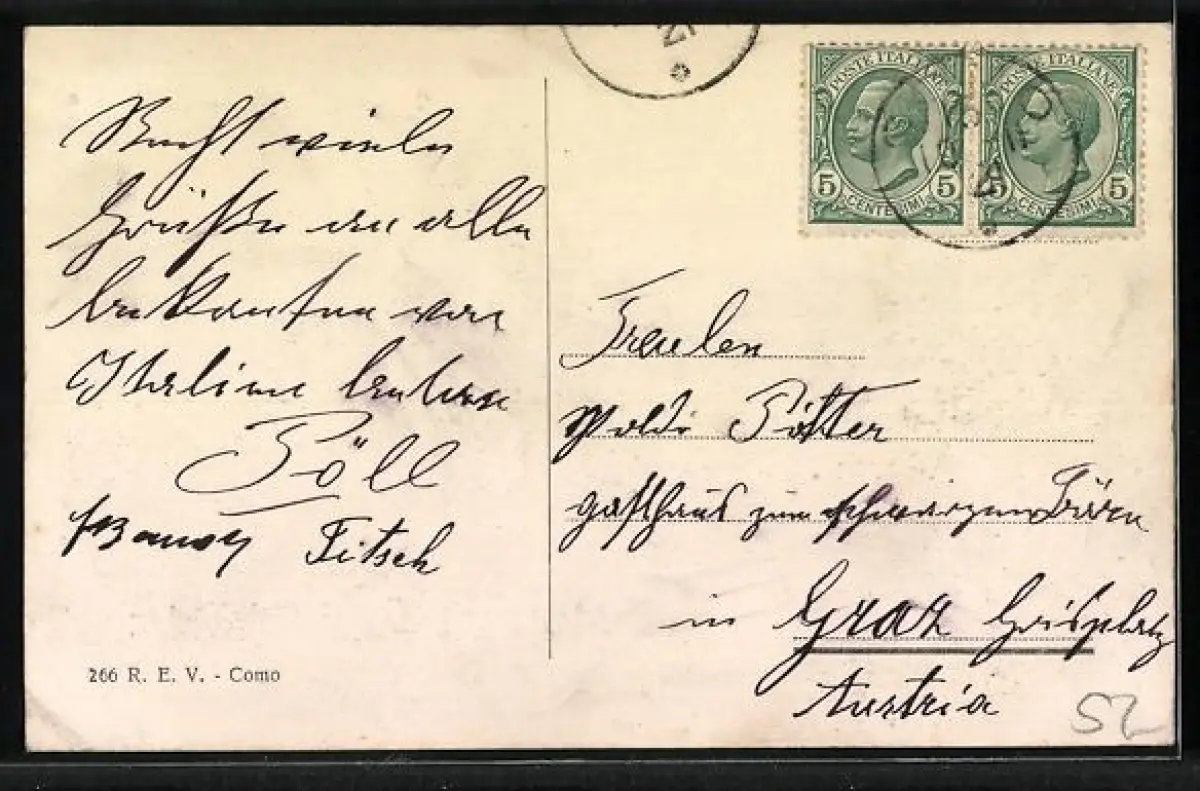 Recht viele
Grüße an alle
bekanten von
Italien
Pöll
Fitsch
266 R. E. V. - Como
POSTE ITALIANE
5 CENTESIMI 5
POSTE ITALIANE
5 CENTESIMI 5
Freulen
Poldi
gasthaus zum schwarzen Bären
in Graz Griesplatz
Austria
52